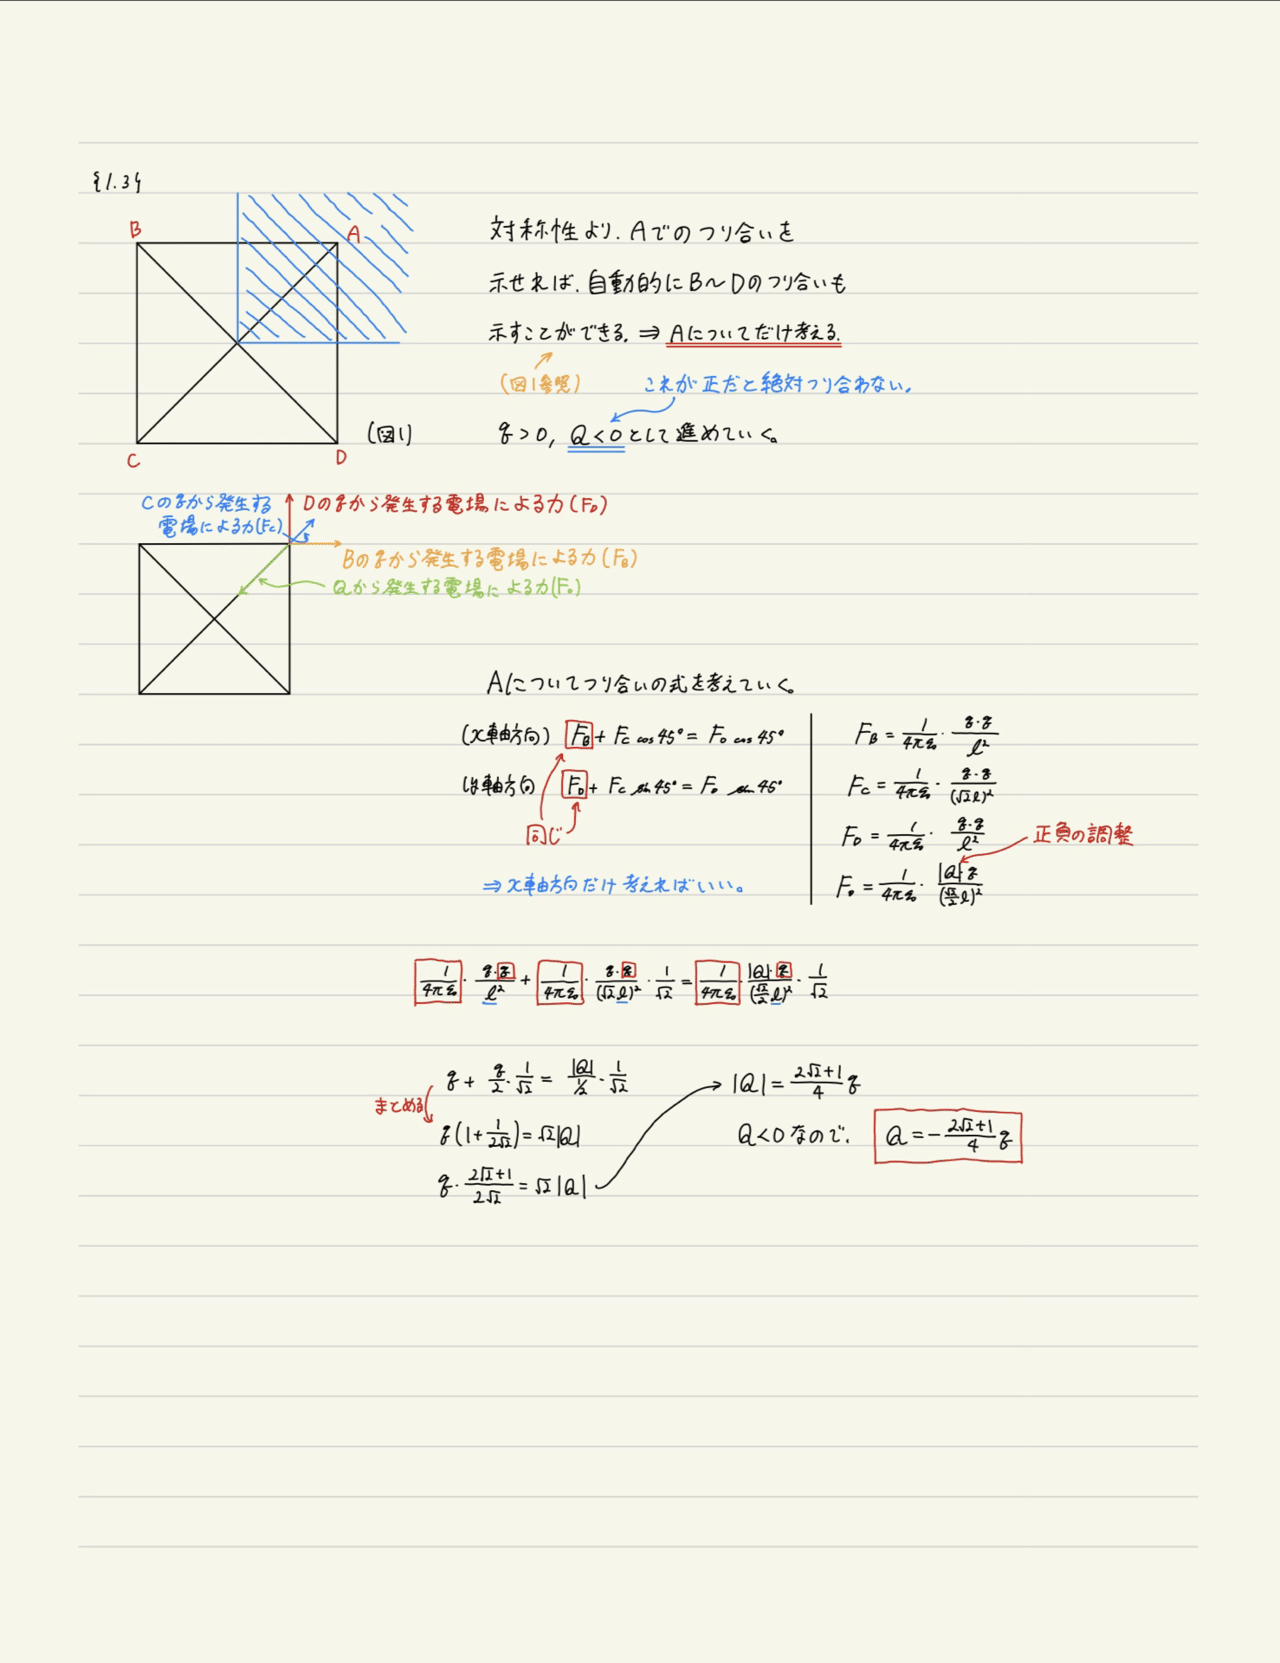 §1.34
B
A
C
D
(図1)
対称性より、Aでのつり合いを
示せれば、自動的にB〜Dのつり合いも
示すことができる。⇒ Aについてだけ考える。
(図1参照)
これが正だと絶対つり合わない。
q>0, Q<0として進めていく。
Cのqから発生する
電場による力(Fc)
Dのqから発生する電場による力(F_D)
Bのqから発生する電場による力(F_B)
Qから発生する電場による力(F₀)
Aについてつり合いの式を考えていく。
(x軸方向) F_B + F_C cos45° = F₀ cos45°
(y軸方向 F_D + F_C sin45° = F₀ sin45°
同じ
⇒ x軸方向だけ考えればいい。
F_B = 1/4πε₀ · q·q/l²
F_C = 1/4πε₀ · q·q/(√2l)²
F_D = 1/4πε₀ · q·q/l²
正負の調整
F₀ = 1/4πε₀ · |Q|q/(√2/2 l)²
1/4πε₀ · q·q/l² + 1/4πε₀ · q·q/(√2l)² · 1/√2 = 1/4πε₀ |Q|·q/(√2/2 l)² · 1/√2
q + q/2 · 1/√2 = |Q|/1/2 · 1/√2
まとめる
q(1+1/2√2) = √2|Q|
q · 2√2+1/2√2 = √2|Q|
|Q| = 2√2+1/4 q
Q<0なので、 Q = −2√2+1/4 q